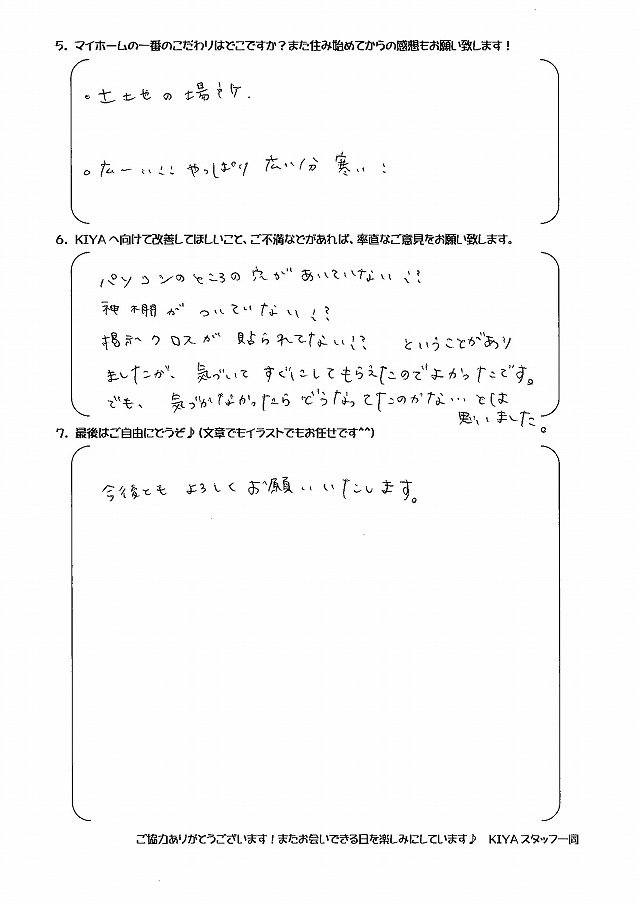 5. マイホームの一番のこだわりはどこですか？また住み始めてからの感想もお願い致します！
・土地の場所.
・広ーい!! やっぱり 広い分 寒い!
6. KIYAへ向けて改善してほしいこと、ご不満などがあれば、率直なご意見をお願い致します。
パソコンのところの穴があいていない!?
神棚が ついていない!?
掲示クロスが 貼られてない!? ということがあり
ましたが、気づいて すぐにしてもらえたのでよかったです。
でも、気づかなかったら どうなってたのかな… とは
思いました。
7. 最後はご自由にどうぞ♪(文章でもイラストでもお任せです^^)
今後とも よろしく お願いいたします。
ご協力ありがとうございます！またお会いできる日を楽しみにしています♪ KIYAスタッフ一同